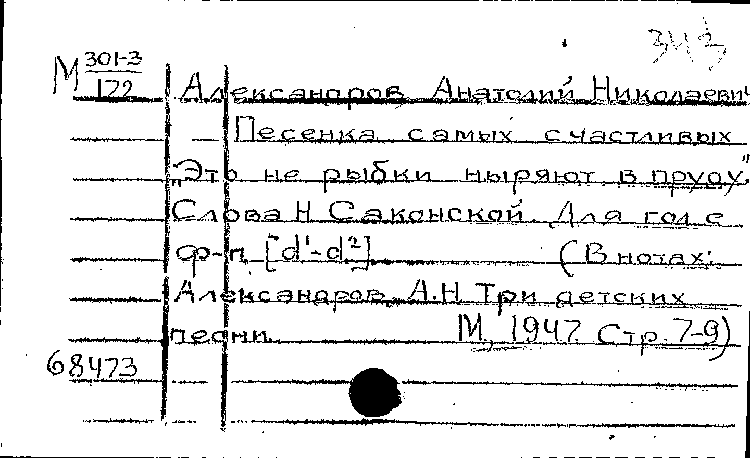 343
М 301-3/122
Александров, Анатолий Николаевич
Песенка самых счастливых
"Это не рыбки ныряют в пруду".
Слова Н Саконской. Для гол с
ф-п. [d¹-d²] (В нотах:
Александров, А.Н Три детских
песни. М, 1947 Стр. 7-9)
68473